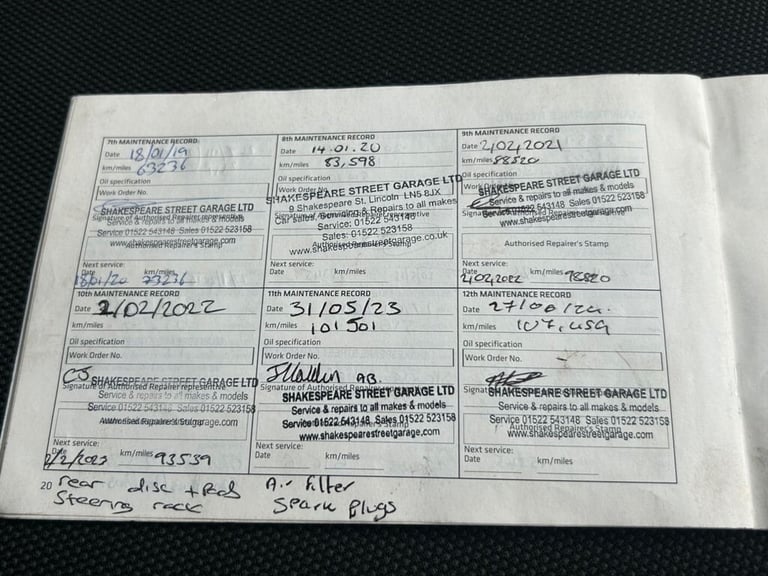 7th MAINTENANCE RECORD
Date 18/01/19
km/miles 63236
Oil specification
Work Order No.
SHAKESPEARE STREET GARAGE LTD
Signature of Authorised Repairer representative
Service & repairs to all makes & models
Service 01522 543148 Sales 01522 523158
www.shakespearestreetgarage.com
Authorised Repairer's Stamp
Next service:
Date 18/01/20 km/miles 73236
8th MAINTENANCE RECORD
Date 14.01.20
km/miles 83,598
Oil specification
Work Order No.
SHAKESPEARE STREET GARAGE LTD
9 Shakespeare St. Lincoln LN5 8JX
Car sales, Servicing & Repairs to all makes
Service: 01522 543148
Sales: 01522 523158
Authorised Repairer's Stamp
www.shakespearestreetgarage.co.uk
Next service:
Date km/miles
9th MAINTENANCE RECORD
Date 2/02/2021
km/miles 88520
Oil specification
SHAKESPEARE STREET GARAGE LTD
Service & repairs to all makes & models
Service 01522 543148 Sales 01522 523158
www.shakespearestreetgarage.com
Authorised Repairer's Stamp
Next service:
Date 2/02/2022 km/miles 98520
10th MAINTENANCE RECORD
Date 2/02/2022
km/miles
Oil specification
Work Order No.
CJ
SHAKESPEARE STREET GARAGE LTD
Signature of Authorised Repairer representative
Service & repairs to all makes & models
Service 01522 543148 Sales 01522 523158
Authorised Repairer's Stamp
Next service:
Date 2/2/2023 km/miles 93539
11th MAINTENANCE RECORD
Date 31/05/23
km/miles 101501
Oil specification
Work Order No.
AB.
Signature of Authorised Repairer representative
SHAKESPEARE STREET GARAGE LTD
Service & repairs to all makes & models
Service 01522 543148 Sales 01522 523158
Authorised Repairer's Stamp
www.shakespearestreetgarage.com
Next service:
Date km/miles
12th MAINTENANCE RECORD
Date
km/miles
Oil specification
Work Order No. -
SHAKESPEARE STREET GARAGE LTD
Service & repairs to all makes & models
Service 01522 543148 Sales 01522 523158
Authorised Repairer's Stamp
www.shakespearestreetgarage.com
Next service:
Date km/miles
20 rear disc + Pads
Steering rack
Air filter
Spark plugs